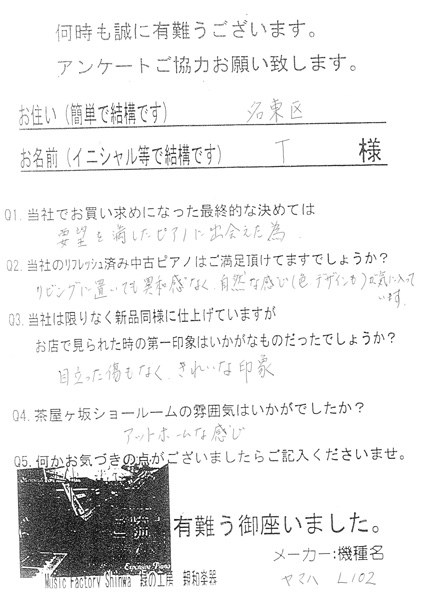 何時も誠に有難うございます。
アンケートご協力お願い致します。
お住い（簡単で結構です） 名東区
お名前（イニシャル等で結構です） T 様
Q1. 当社でお買い求めになった最終的な決めては
要望を満したピアノに出会えた為.
Q2. 当社のﾘﾌﾚｯｼｭ済み中古ピアノはご満足頂けてますでしょうか？
リビングに置いても異和感なく、自然な感じ（色 デザインも）が気に入って
います.
Q3. 当社は限りなく新品同様に仕上げていますが
お店で見られた時の第一印象はいかがなものだったでしょうか？
目立った傷もなく、きれいな印象
Q4. 茶屋ヶ坂ショールームの雰囲気はいかがでしたか？
アットホームな感じ
Q5. 何かお気づきの点がございましたらご記入くださいませ。
有難う御座いました。
メーカー:機種名
Expensive Piano
Music Factory Shinwa 森の工房 親和楽器
ヤマハ L102